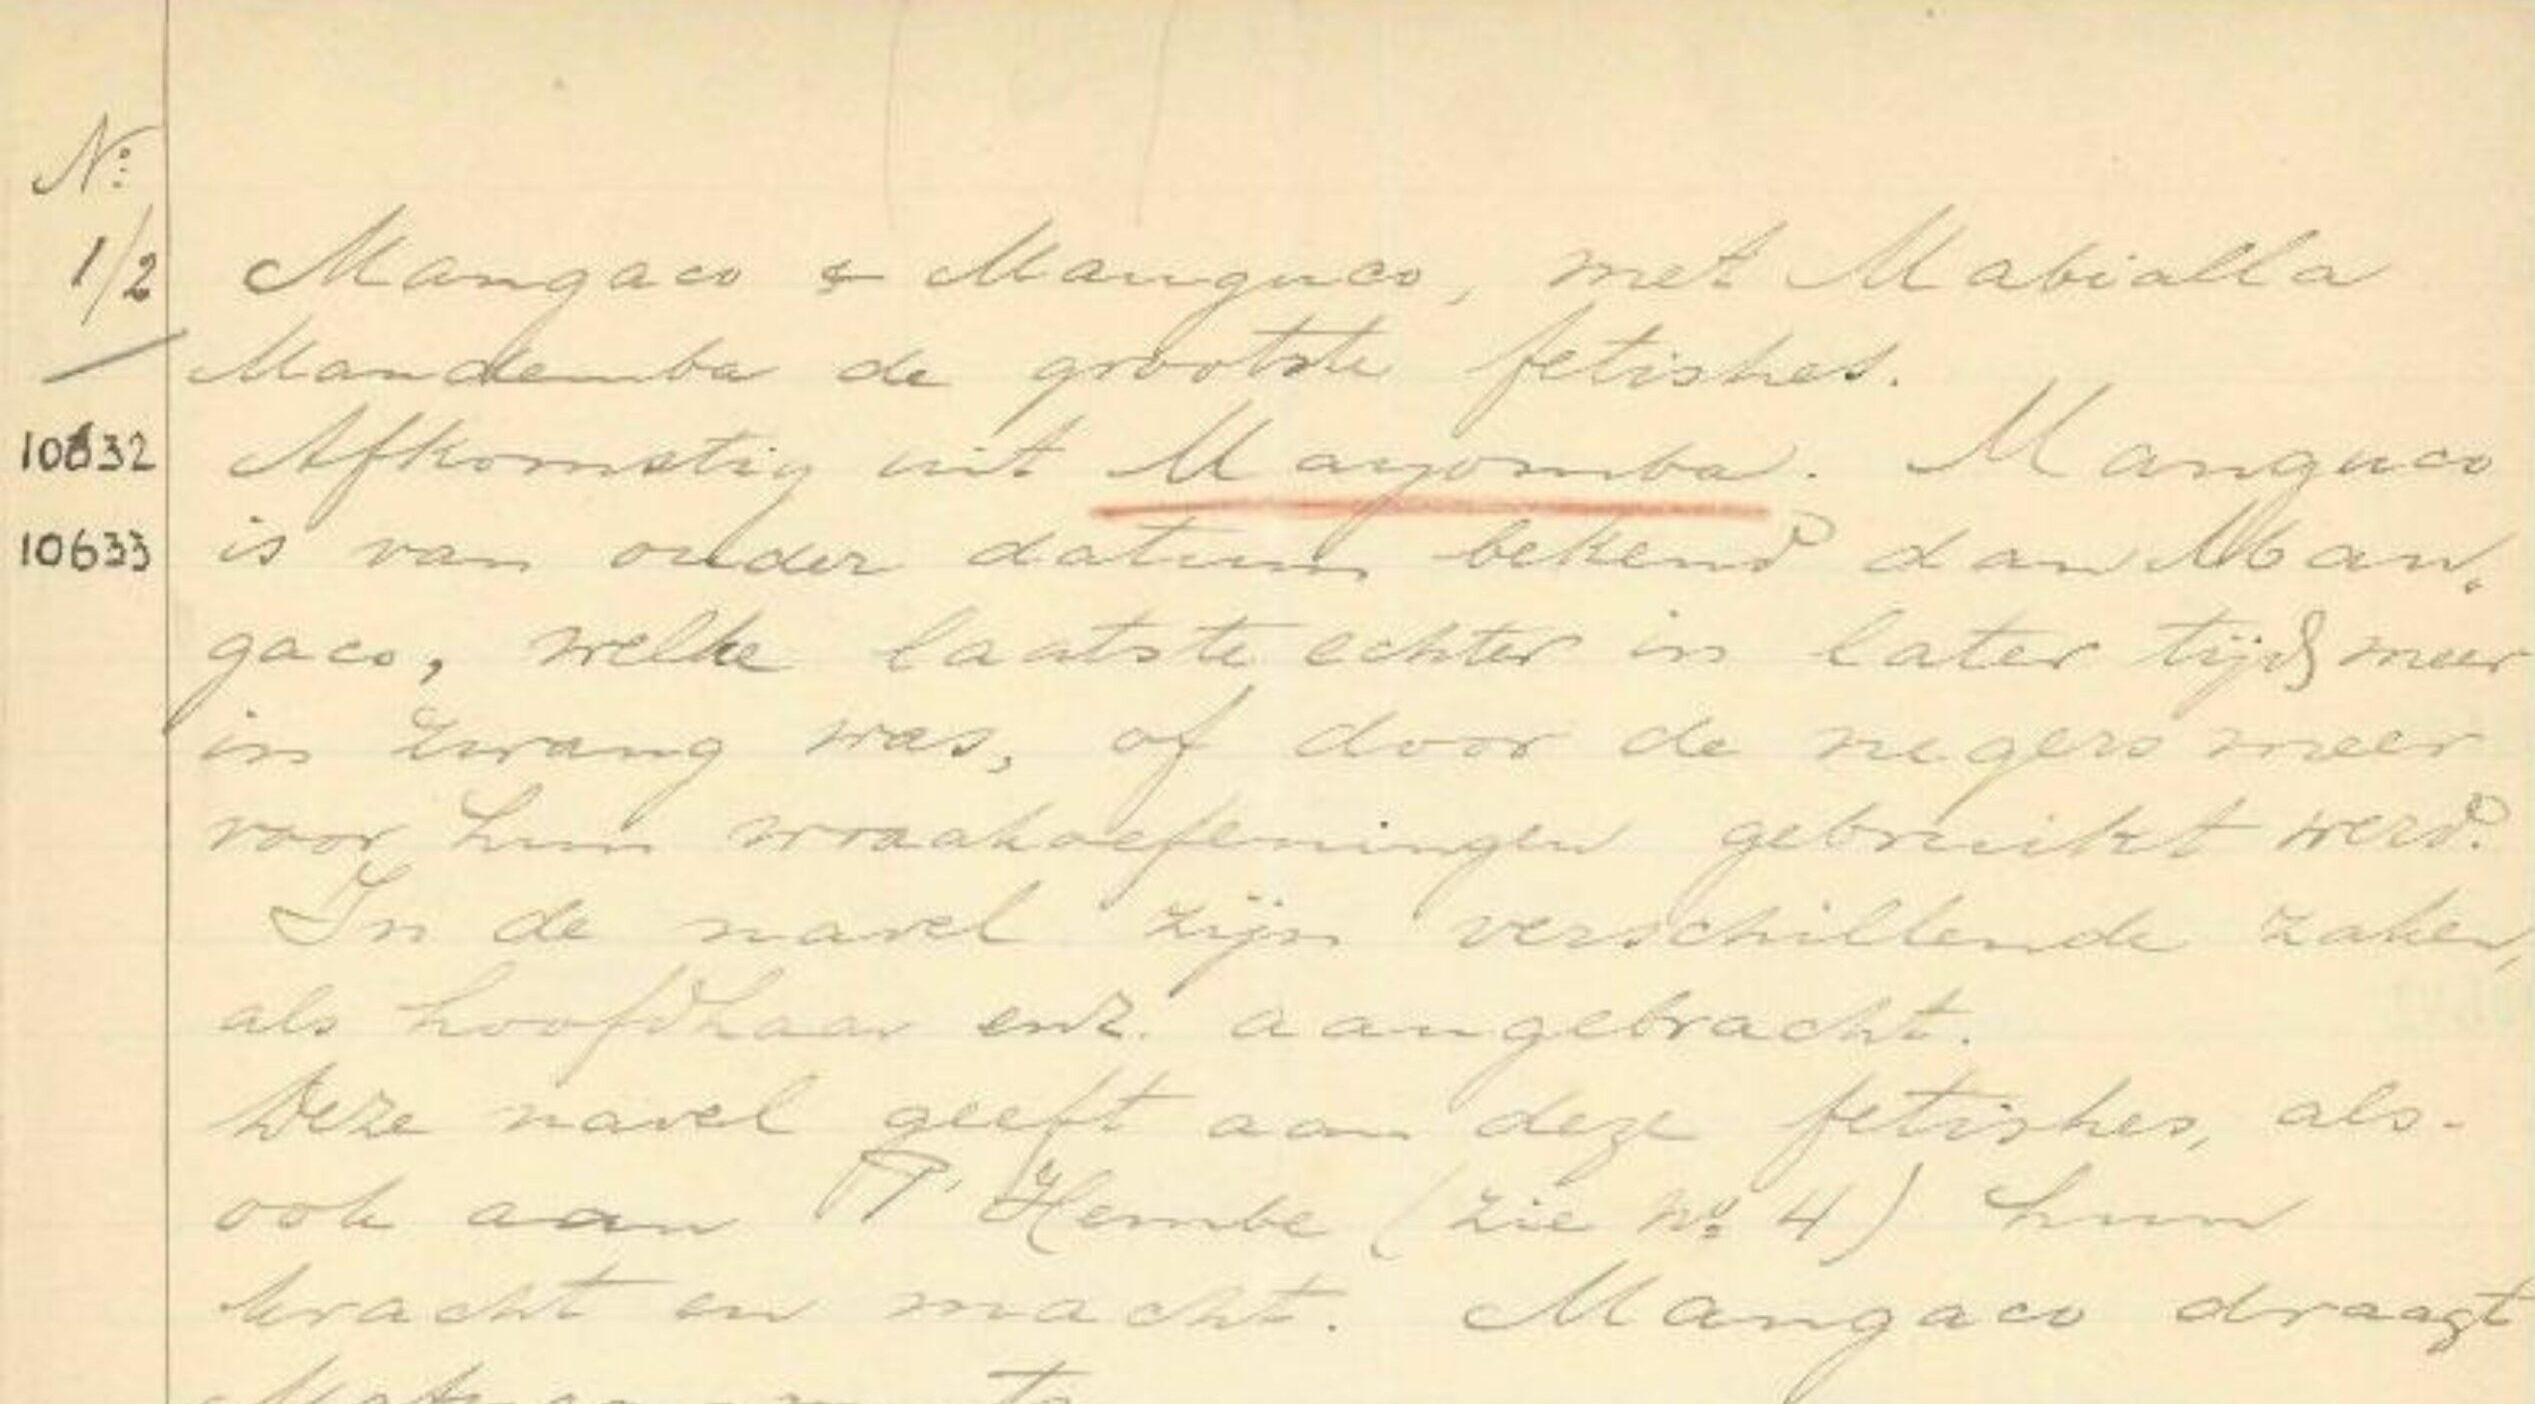 No:
1/2 Mangaco & Manguco, met Mabialla
Mandemba de grootste fetishes.
10632 Afkomstig uit Mayomba. Manguco
10633 is van ouder datum bekend dan Man-
gaco, welke laatste echter in later tijd meer
in zwang was, of door de negers meer
voor hun wraakoefeningen gebruikt werd.
In de navel zijn verschillende zaken,
als hoofdhaar enz. aangebracht.
Deze navel geeft aan deze fetishes, als-
ook aan P. Hembe (zie no. 4) hun
kracht en macht. Mangaco draagt